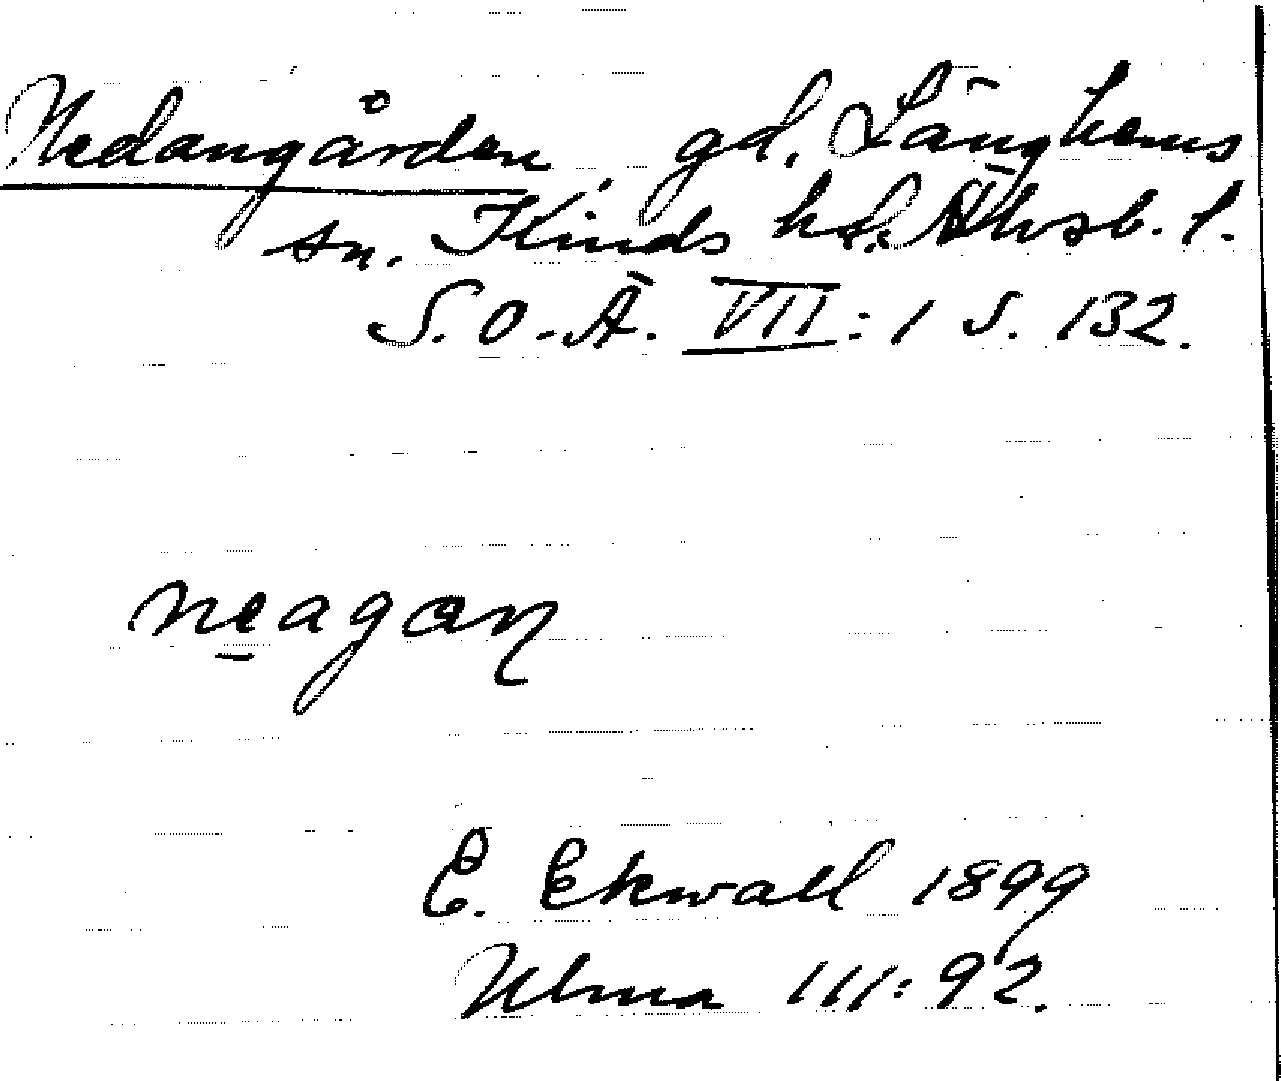 Nedangården gd. Länghems
sn. Kinds hd. Älvsb. l.
S.O.-Ä. VII: 1 s. 132.
neagaŋ
E. Ekwall 1899
Ulma 111:92.